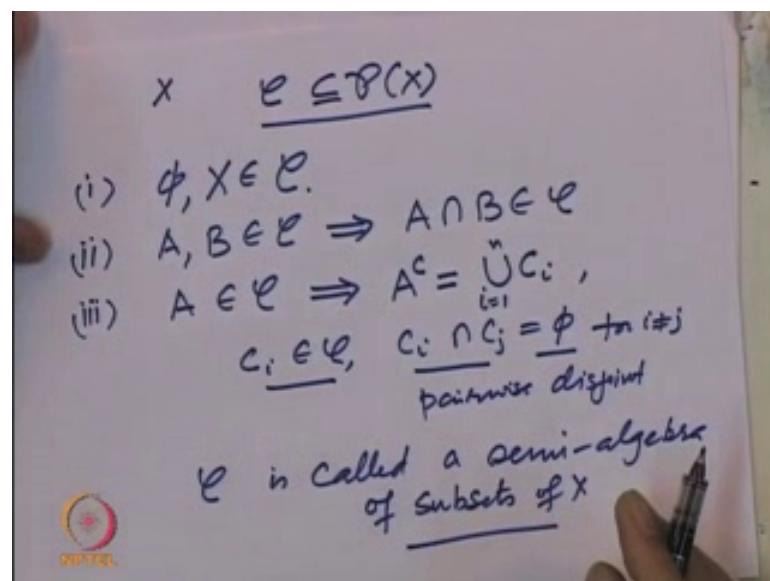 X 𝒞 ⊆ 𝒫(X)
(i) ϕ, X ∈ 𝒞.
(ii) A, B ∈ 𝒞 ⇒ A ∩ B ∈ 𝒞
(iii) A ∈ 𝒞 ⇒ Aᶜ = ⋃ⁿᵢ₌₁ Cᵢ ,
Cᵢ ∈ 𝒞, Cᵢ ∩ Cⱼ = ϕ for i≠j
pairwise disjoint
𝒞 is called a semi-algebra
of subsets of X
NPTEL